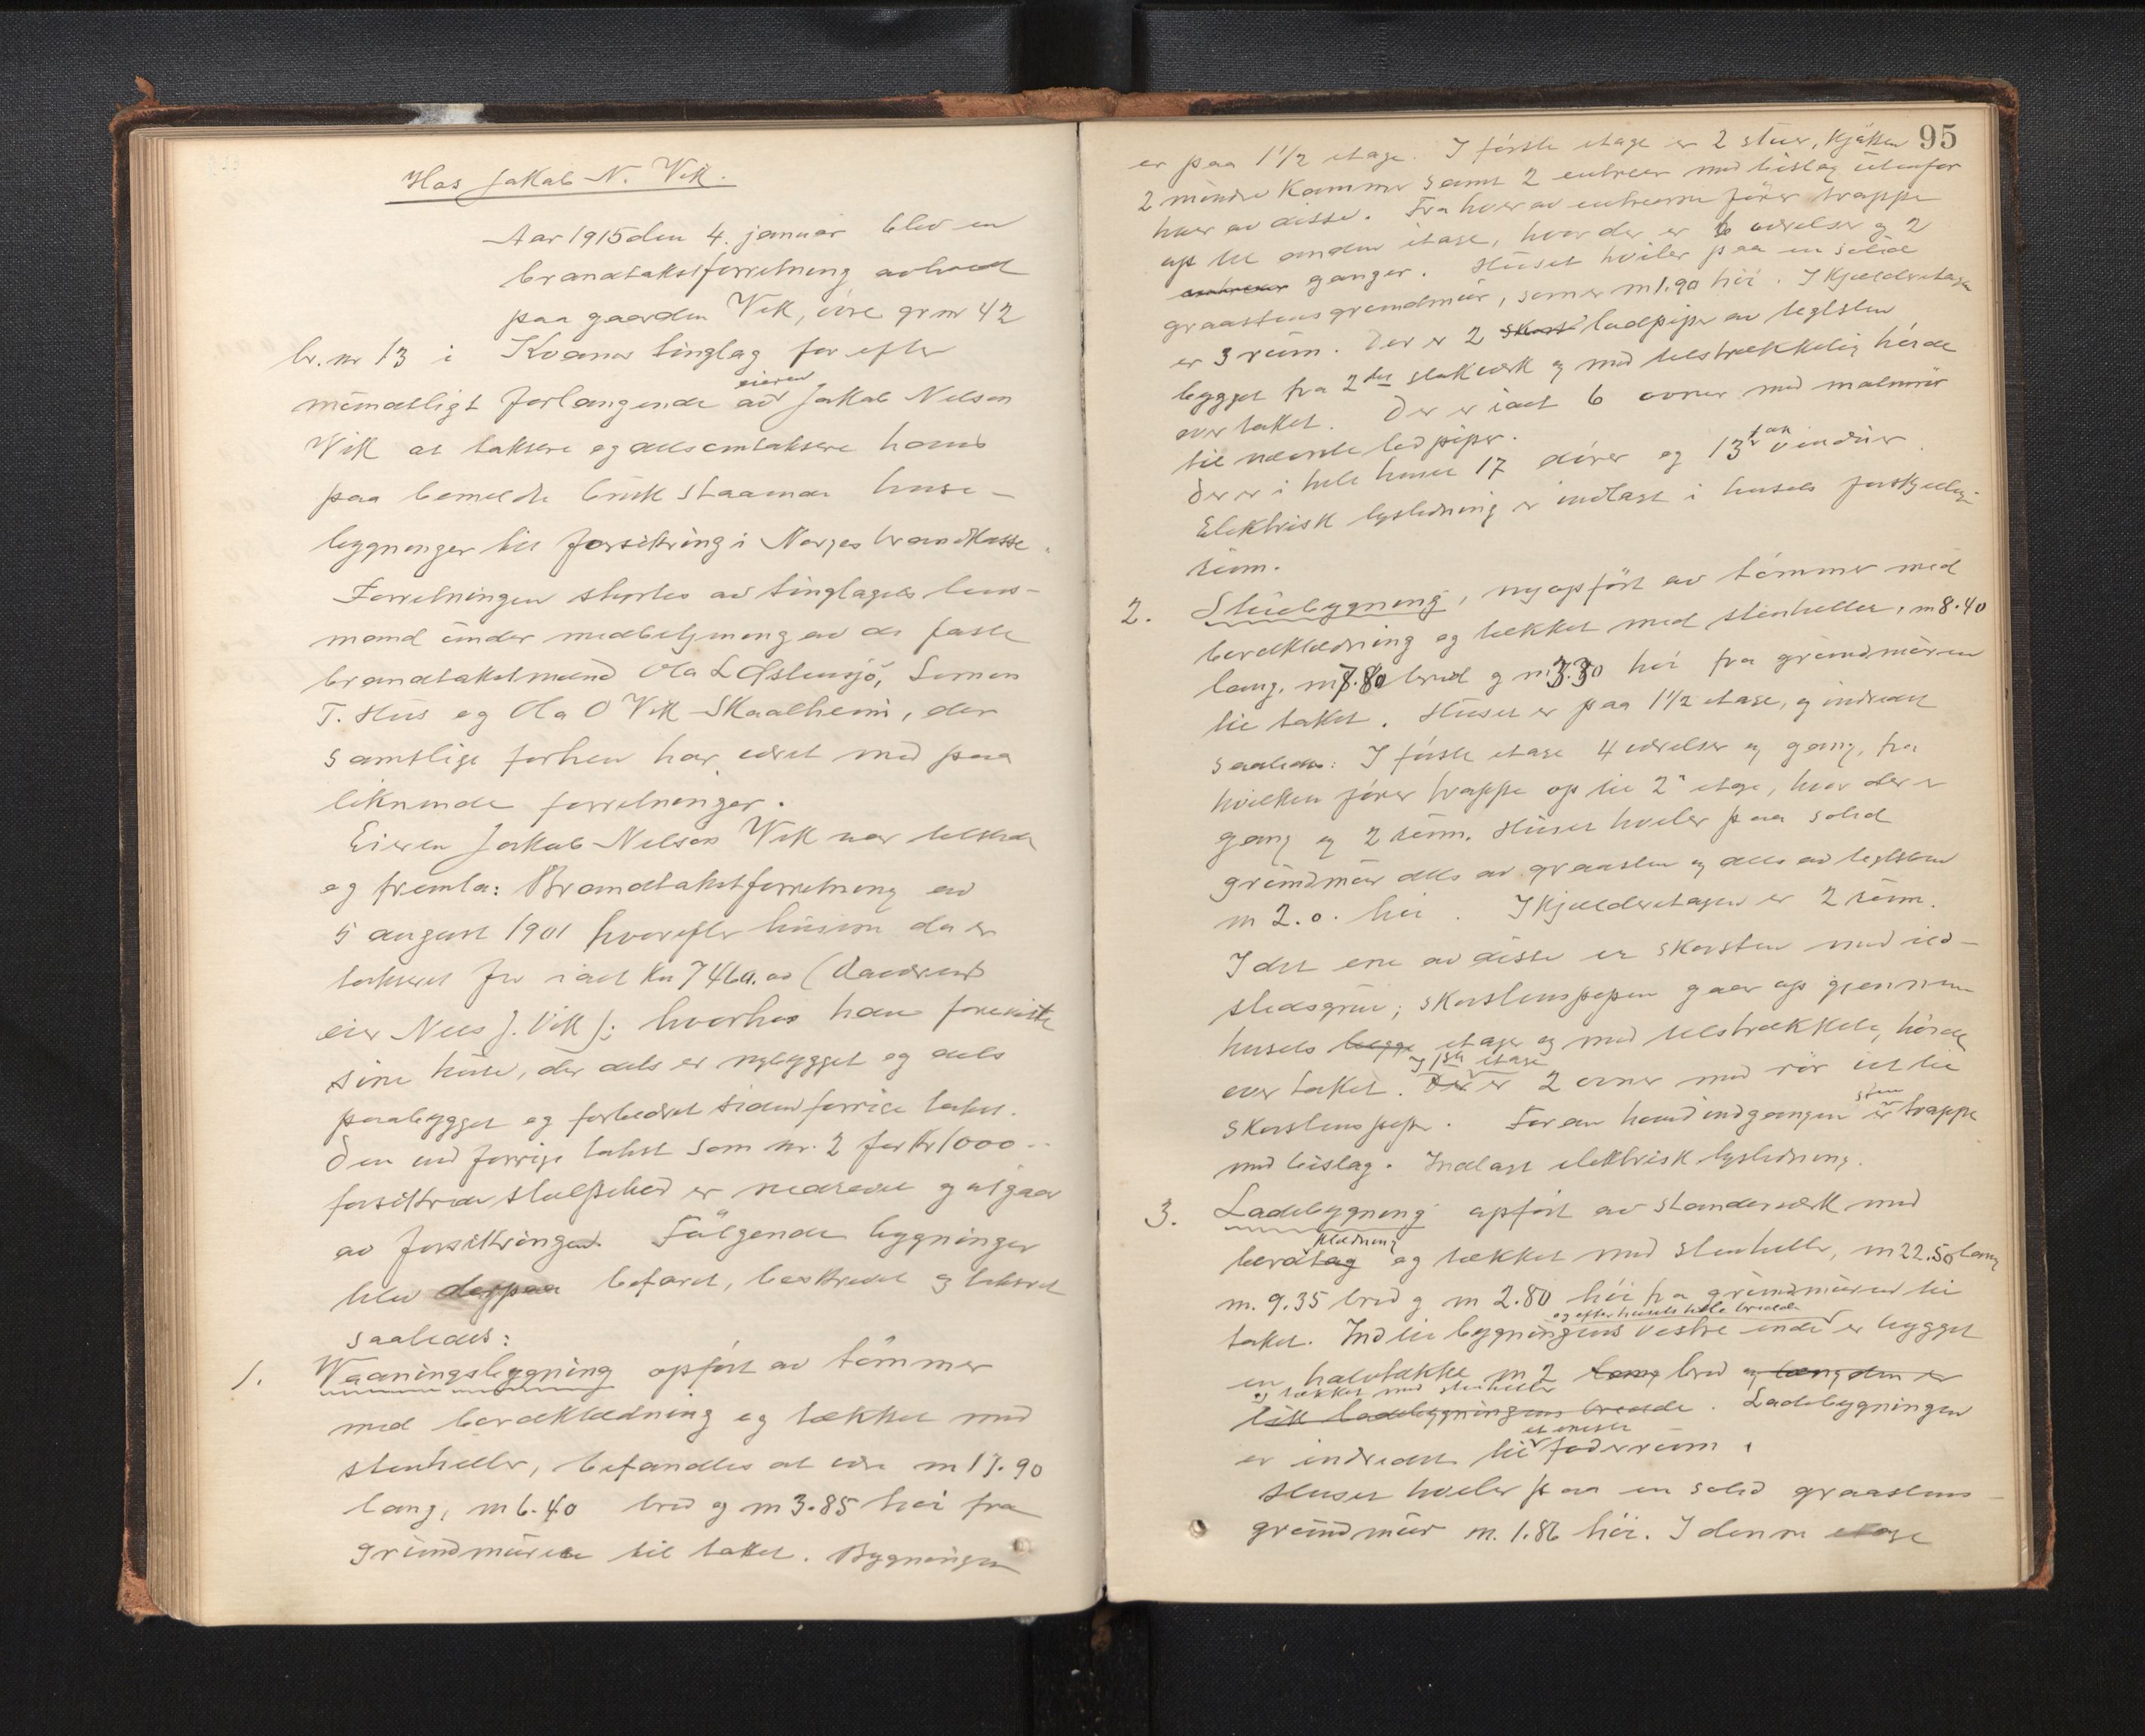 Hos Jakob N. Vik.
Aar 1915 den 4. januar blev en
brandtakstforretning avholdt
paa gaarden Vik, övre gr nr 42
br. nr 13 i Kvamsø tinglag for efter
mundtligt forlangende av eieren Jakob Nelson
Vik at taksere og dels omtaksere hans
paa bemeldte bruk staaende huse-
bygninger til forsikring i Norges brandkasse.
Forretningen styrtes av tinglagets lens-
mand under medbetjening av de faste
brandtakstmænd Ola L Østensjö, Simon
T. Hus og Ola O Vik Skaalheim, der
samtlige forhen har været med paa
liknende forretninger.
Eieren Jakob Nelson Vik var tilstede
og fremla: Brandtakstforretning av
5 august 1901 hvorefter husene da er
takseret for ialt kr 7460.00 (daværende
eier Nels J. Vik); hvorhos han foreviste
sine huse, der dels er nybygget og dels
paabygget og forbedret siden forrige takst.
Den ved forrige takst som nr. 2 for kr 1000 --
forsikrede stolpebod er nedrevet og utgaar
av forsikringen. Fölgende bygninger
blev derpaa befaret, beskrevet og takseret
saaledes:
1. Vaaningsbygning opfört av tömmer
med bordklædning og tækket med
stenheller, befandtes at være m 17.90
lang, m 6.40 bred og m 3.85 høi fra
grundmuren til taket. Bygningen
95
er paa 1 1/2 etage. I förste etage er 2 stuer, kjökken
2 mindre kammer samt 2 entreer med bislag utenfor
hver av disse. Fra hver av entreerne förer trappe
op til anden etage, hvor der er 6 værelser og 2
entreeer ganger. Huset hviler paa en solid
graastens grundmur, som er m 1.90 høi. I kjælderetagen
er 3 rum. Der er 2 skorst ladpiper av teglsten
bygget fra 2det stokverk og med tilstrækkelig høide
over taket. Der er ialt 6 ovner med malmrör
til nævnte ledpiper.
Der er i hele huset 17 dörer og 13 fag vinduer.
Elektrisk lysledning er indlagt i husets forskjellige
rum.
2. Stuebygning, nyopfört av tömmer med
bordklædning og tækket med stenheller, m 8.40
lang, m 7.80 bred og m 3.30 høi fra grundmuren
til taket. Huset er paa 1 1/2 etage, og indredet
saaledes: I förste etage 4 værelser og gang, fra
hvilken förer trappe op til 2" etage, hvor der er
gang og 2 rum. Huset hviler paa solid
grundmur dels av graasten og dels av teglsten
m 2.0. høi. I kjælderetagen er 2 rum.
I det ene av disse er skorsten med ild-
stedsgrue; skorstenspipen gaar op gjennem
husets begge etager og med tilstrækkelig høide
over taket. Der I 1ste etage er 2 ovner med rör ut til
skorstenspipe. Foran hovedindgangen er sten trappe
med bislag. Indlagt elektrisk lysledning.
3. Ladebygning opfört av standerverk med
bordtag klædning og tækket med stenheller, m 22.50 lang
m. 9.35 bred og m 2.80 høi fra grundmuren til
taket. Ind til bygningens vestre ende og efter husets hele bredde er bygget
en halvtække m 2 lang bred og længden er
lik ladebygningens bredde og tækket med stenheller. Ladebygningen
er indredet til et eneste foderrum.
Huset hviler paa en solid graastens-
grundmur m. 1.86 høi. I denne etage